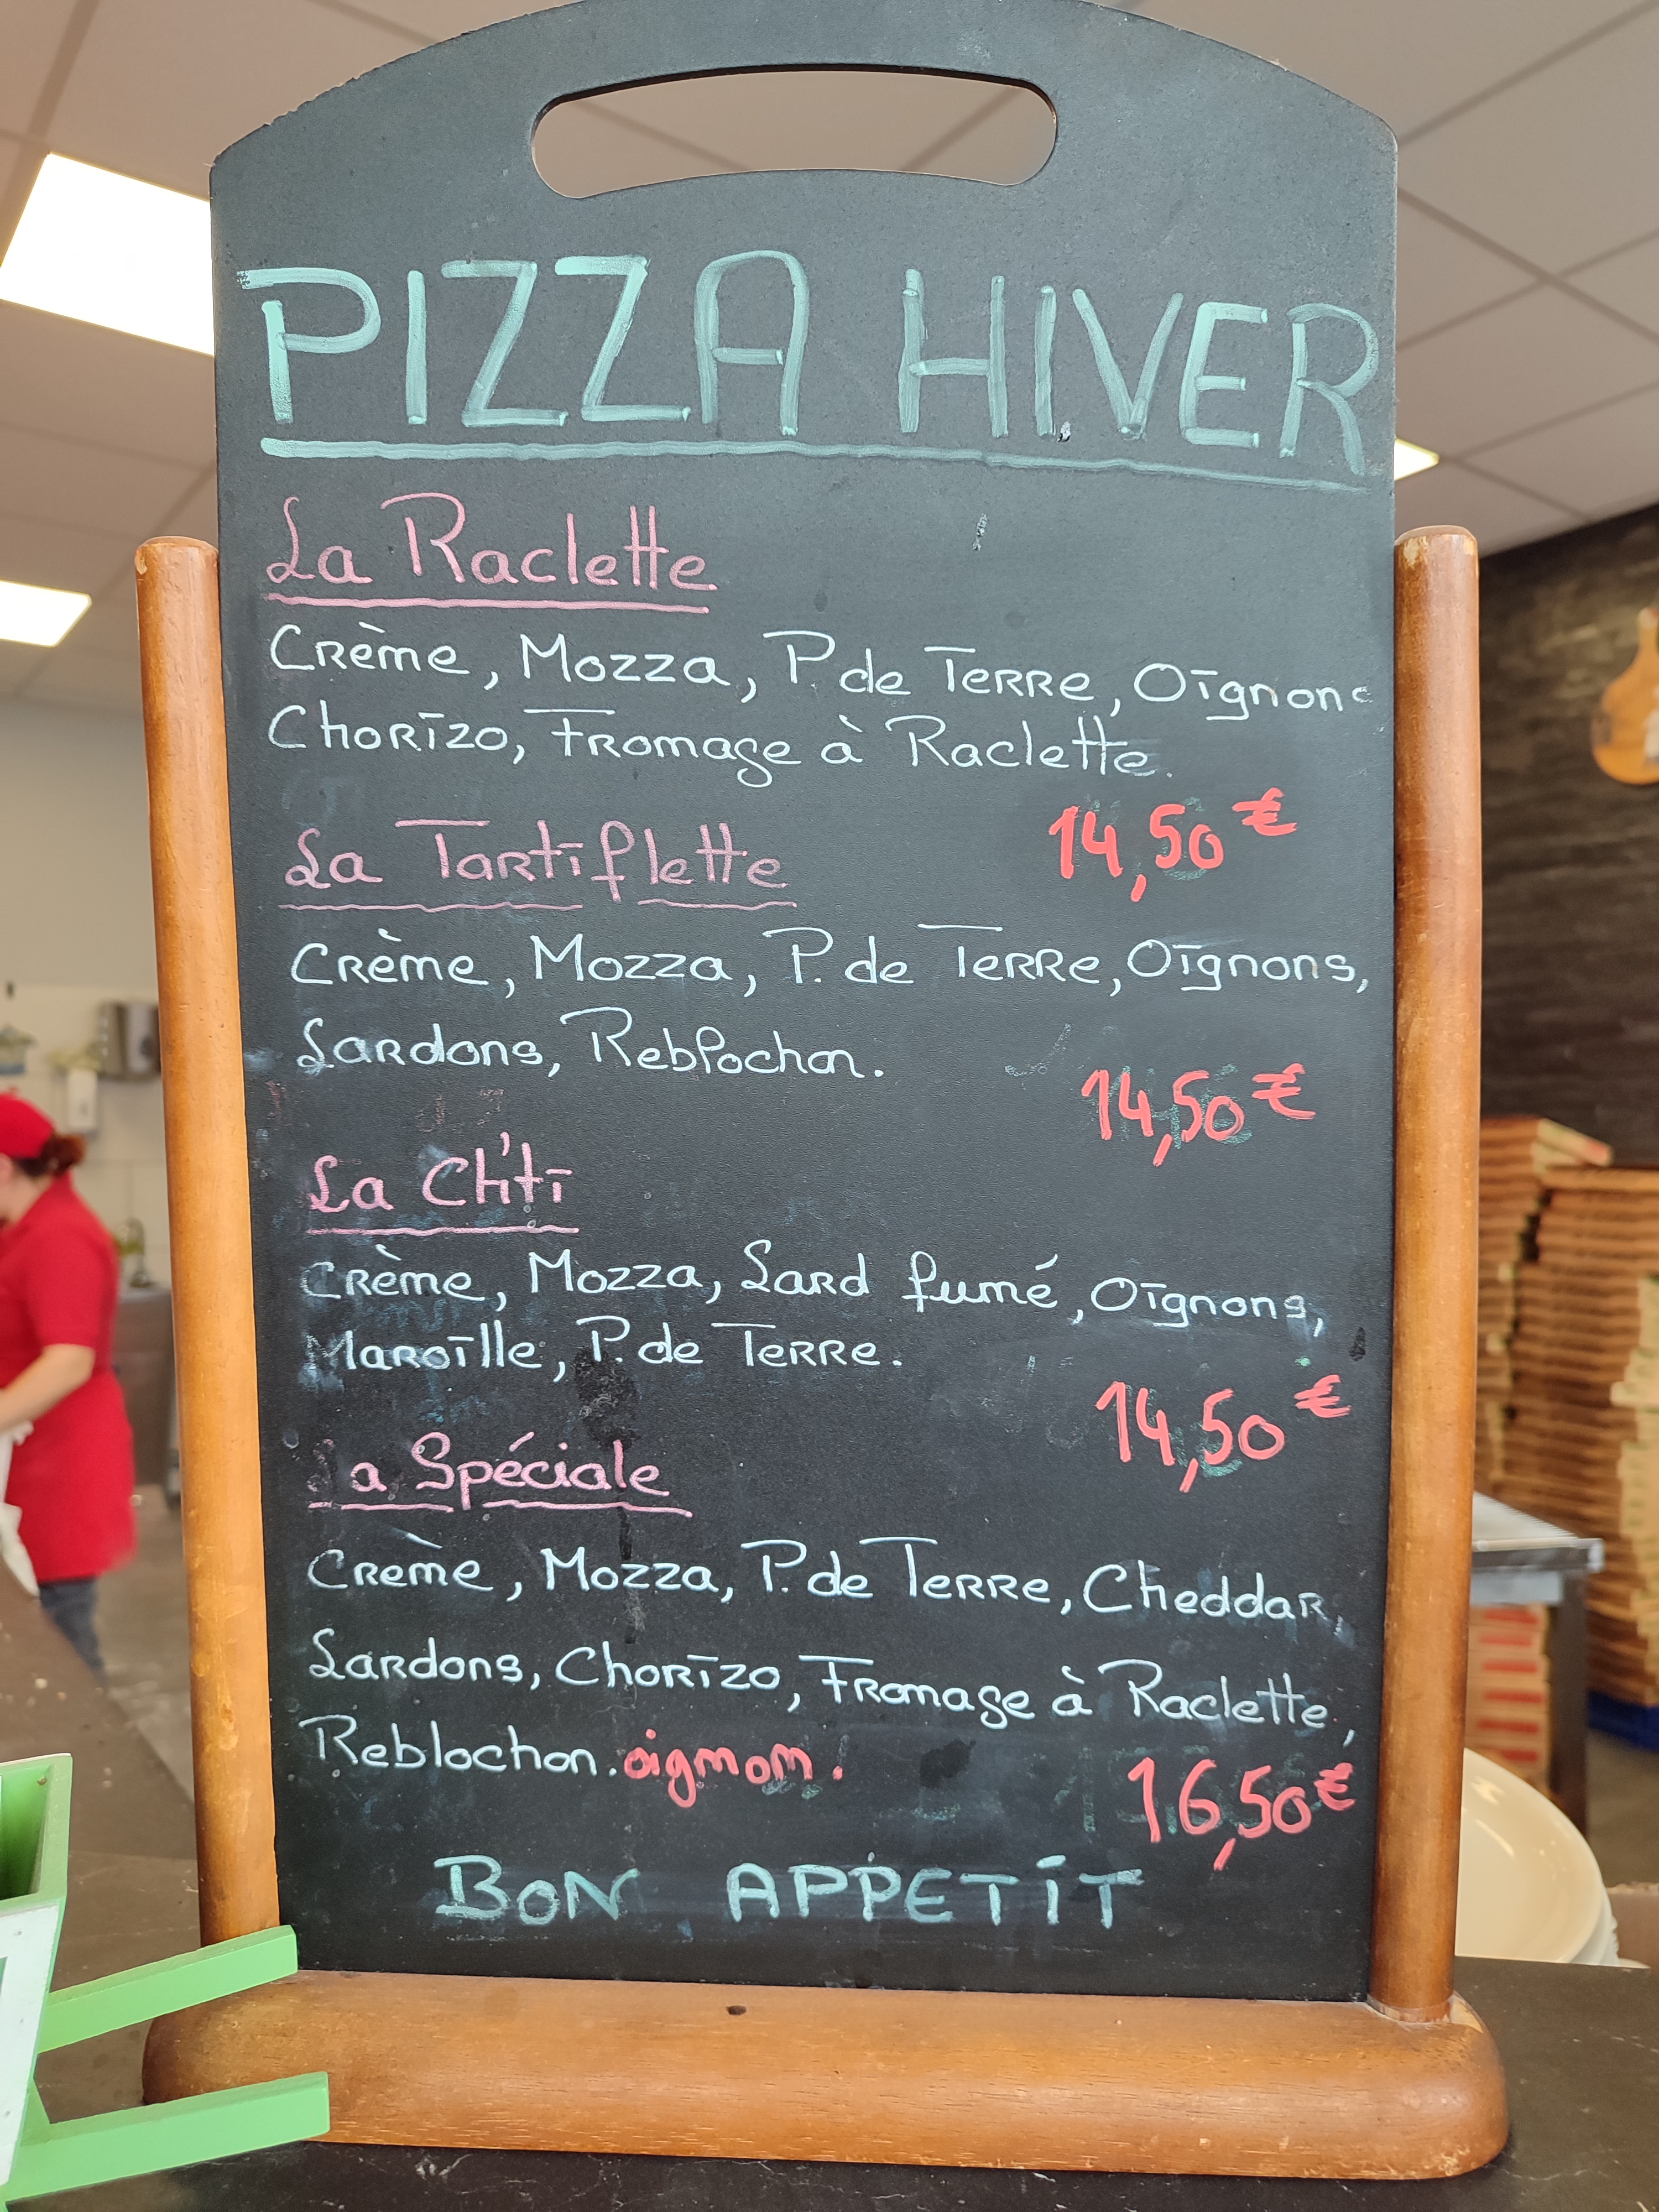 PIZZA HIVER
La Raclette
Crème, Mozza, P. de Terre, Oignons
Chorizo, Fromage à Raclette.
14,50€
La Tartiflette
Crème, Mozza, P. de Terre, Oignons,
Lardons, Reblochon.
14,50€
La Ch'ti
Crème, Mozza, Lard fumé, Oignons,
Maroille, P. de Terre.
14,50€
La Spéciale
Crème, Mozza, P. de Terre, Cheddar,
Lardons, Chorizo, Fromage à Raclette,
Reblochon. oignon.
16,50€
BON APPETIT